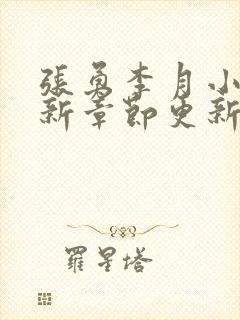 張勇李月小
新章節更新
羅星塔